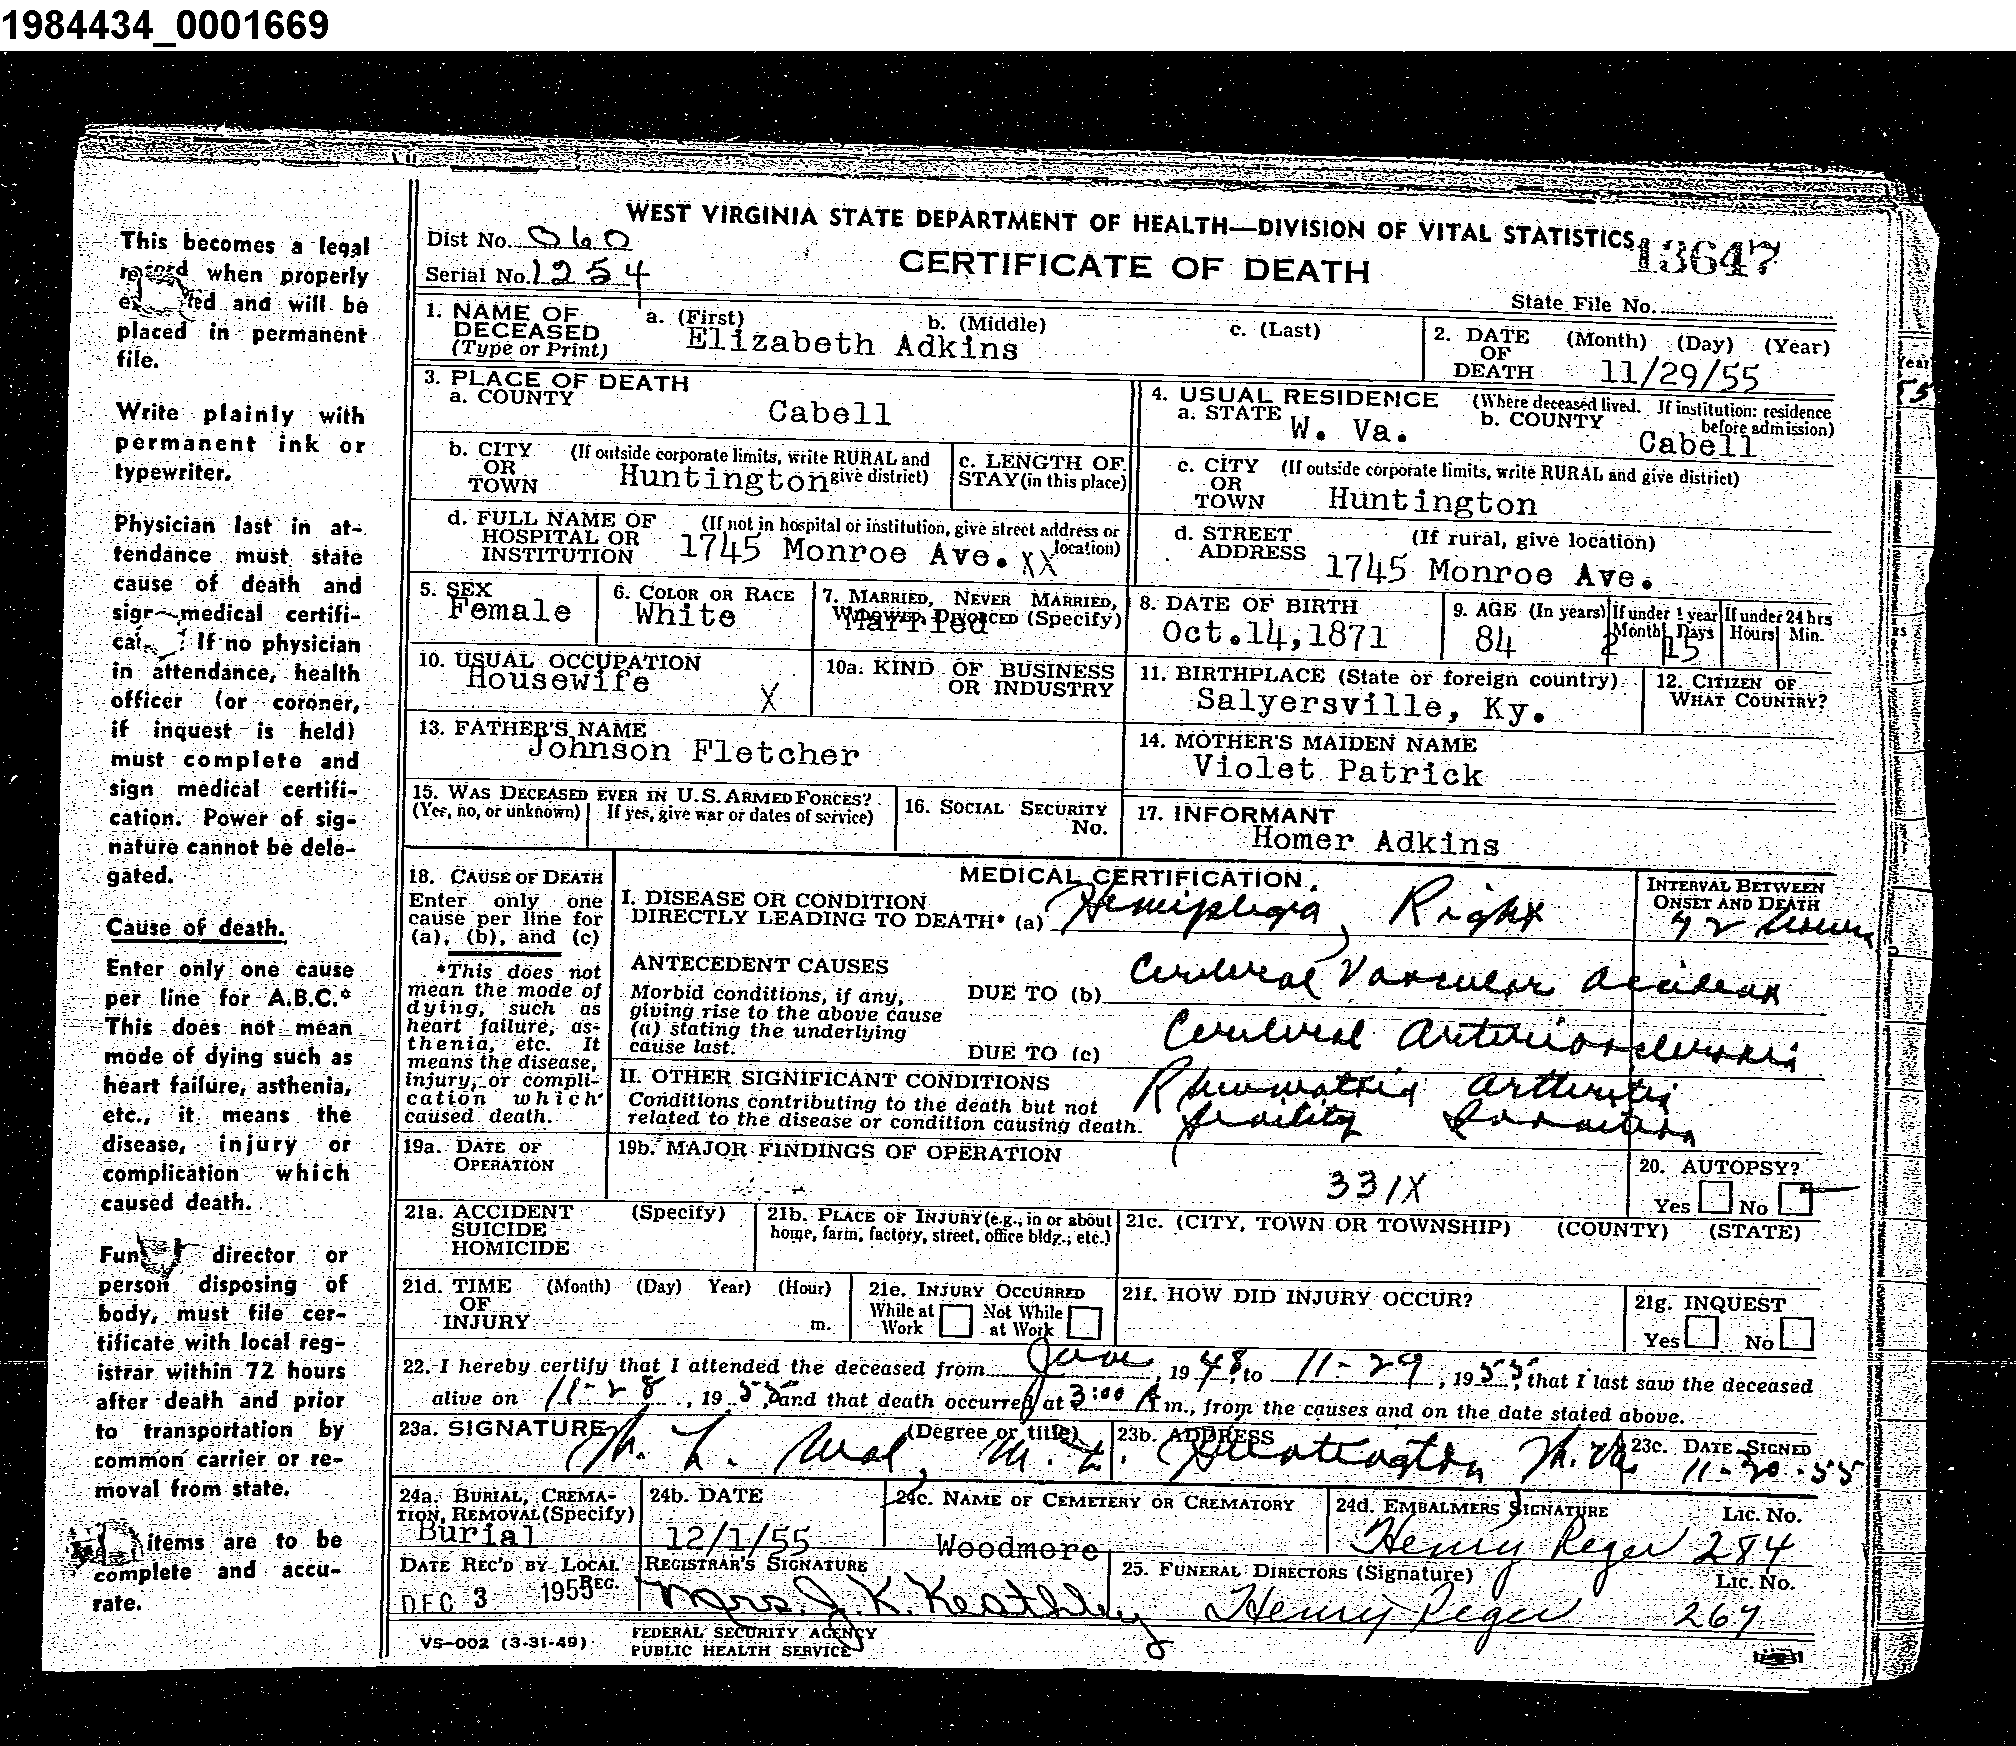 1984434_0001669
This becomes a legal
record when properly
and will be
placed in permanent
file.
Write plainly with
permanent ink or
typewriter.
Physician last in at-
tendance must state
cause of death and
sign medical certifi-
If no physician
in attendance, health
officer (or coroner,
if inquest is held)
must complete and
sign medical certifi-
cation. Power of sig-
nature cannot be dele-
gated.
Cause of death.
Enter only one cause
per line for A.B.C.*
This does not mean
mode of dying such as
heart failure, asthenia,
etc., it means the
disease, injury or
complication which
caused death.
director or
person disposing of
body, must file cer-
tificate with local reg-
istrar within 72 hours
after death and prior
to transportation by
common carrier or re-
moval from state.
items are to be
complete and accu-
rate.
WEST VIRGINIA STATE DEPARTMENT OF HEALTH—DIVISION OF VITAL STATISTICS
Dist No. 060
CERTIFICATE OF DEATH
13647
Serial No. 1254
State File No.
1. NAME OF DECEASED (Type or Print)
a. (First) b. (Middle) c. (Last)
Elizabeth Adkins
2. DATE OF DEATH (Month) (Day) (Year)
11/29/55
3. PLACE OF DEATH
a. COUNTY
Cabell
4. USUAL RESIDENCE (Where deceased lived. If institution: residence before admission)
a. STATE W. Va. b. COUNTY Cabell
b. CITY OR TOWN (If outside corporate limits, write RURAL and give district)
Huntington
c. LENGTH OF STAY (in this place)
c. CITY OR TOWN (If outside corporate limits, write RURAL and give district)
Huntington
d. FULL NAME OF HOSPITAL OR INSTITUTION (If not in hospital or institution, give street address or location)
1745 Monroe Ave. XX
d. STREET ADDRESS (If rural, give location)
1745 Monroe Ave.
5. SEX
Female
6. COLOR OR RACE
White
7. MARRIED, NEVER MARRIED, WIDOWED, DIVORCED (Specify)
Married
8. DATE OF BIRTH
Oct.14,1871
9. AGE (In years) If under 1 year Months Days If under 24 hrs Hours Min.
84 2 15
10. USUAL OCCUPATION
Housewife X
10a. KIND OF BUSINESS OR INDUSTRY
11. BIRTHPLACE (State or foreign country)
Salyersville, Ky.
12. CITIZEN OF WHAT COUNTRY?
13. FATHER'S NAME
Johnson Fletcher
14. MOTHER'S MAIDEN NAME
Violet Patrick
15. WAS DECEASED EVER IN U.S. ARMED FORCES?
(Yes, no, or unknown) If yes, give war or dates of service)
16. SOCIAL SECURITY No.
17. INFORMANT
Homer Adkins
18. CAUSE OF DEATH
Enter only one
cause per line for
(a), (b), and (c)
*This does not
mean the mode of
dying, such as
heart failure, as-
thenia, etc. It
means the disease,
injury, or compli-
cation which
caused death.
MEDICAL CERTIFICATION
I. DISEASE OR CONDITION
DIRECTLY LEADING TO DEATH* (a) Hemiplegia, Right
INTERVAL BETWEEN ONSET AND DEATH
hours
ANTECEDENT CAUSES
Morbid conditions, if any,
giving rise to the above cause
(a) stating the underlying
cause last.
DUE TO (b) Cerebral Vascular Accident
DUE TO (c) Cerebral Arteriosclerosis
II. OTHER SIGNIFICANT CONDITIONS
Conditions contributing to the death but not
related to the disease or condition causing death.
Rheumatoid Arthritis
19a. DATE OF OPERATION
19b. MAJOR FINDINGS OF OPERATION
331X
20. AUTOPSY?
Yes No
21a. ACCIDENT SUICIDE HOMICIDE (Specify)
21b. PLACE OF INJURY (e.g., in or about home, farm, factory, street, office bldg., etc.)
21c. (CITY, TOWN OR TOWNSHIP) (COUNTY) (STATE)
21d. TIME OF INJURY (Month) (Day) Year) (Hour) m.
21e. INJURY OCCURRED
While at Work Not While at Work
21f. HOW DID INJURY OCCUR?
21g. INQUEST
Yes No
22. I hereby certify that I attended the deceased from , 19 48, to 11-29, 1955, that I last saw the deceased
alive on 11-28, 1955, and that death occurred at 3:00 A m., from the causes and on the date stated above.
23a. SIGNATURE (Degree or title)
M.D.
23b. ADDRESS
Huntington W.Va.
23c. DATE SIGNED
11-30-55
24a. BURIAL, CREMA-
TION, REMOVAL (Specify)
Burial
24b. DATE
12/1/55
24c. NAME OF CEMETERY OR CREMATORY
Woodmere
24d. EMBALMERS SIGNATURE Lic. No.
Henry Reger 284
DATE REC'D BY LOCAL REG.
DEC 3 1955
REGISTRAR'S SIGNATURE
Mrs. J. K. Keathley
25. FUNERAL DIRECTORS (Signature) Lic. No.
Henry Reger 267
VS-002 (3-31-49)
FEDERAL SECURITY AGENCY
PUBLIC HEALTH SERVICE